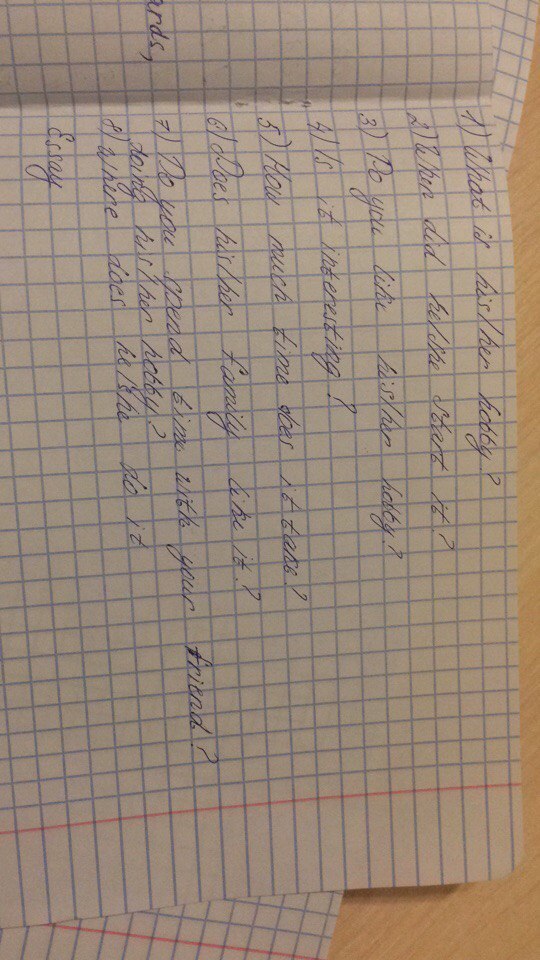 ards,
1) What is his/her hobby?
2) When did he/she start it?
3) Do you like his/her hobby?
4) Is it interesting?
5) How much time does it take?
6) Does his/her family like it?
7) Do you spend time with your friend?
doing his/her hobby?
8) where does he/she do it
Essay